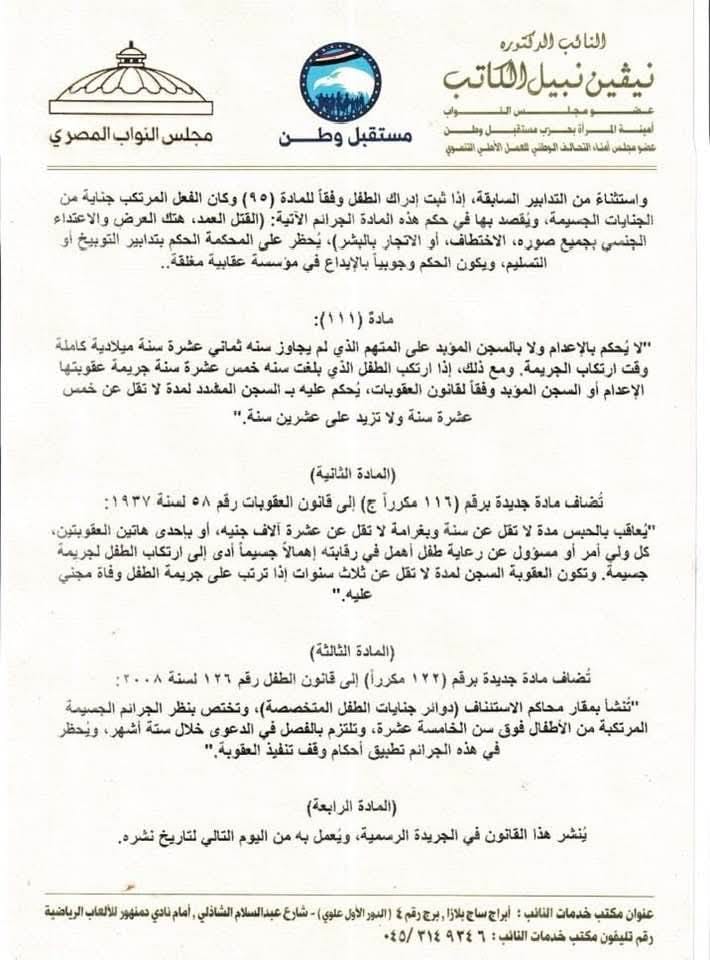 النائب الدكتوره
نيڤين نبيل الكاتب
عضو مجلس النواب
أمينة المرأة بحزب مستقبل وطن
عضو مجلس أمناء التحالف الوطني للعمل الأهلي التنموي
مستقبل وطن
مجلس النواب المصري
واستثناءً من التدابير السابقة، إذا ثبت إدراك الطفل وفقاً للمادة (٩٥) وكان الفعل المرتكب جناية من
الجنايات الجسيمة، ويُقصد بها في حكم هذه المادة الجرائم الآتية: (القتل العمد، هتك العرض والاعتداء
الجنسي بجميع صوره، الاختطاف، أو الاتجار بالبشر)، يُحظر على المحكمة الحكم بتدابير التوبيخ أو
التسليم، ويكون الحكم وجوبياً بالإيداع في مؤسسة عقابية مغلقة..
مادة (١١١):
"لا يُحكم بالإعدام ولا بالسجن المؤبد على المتهم الذي لم يجاوز سنه ثماني عشرة سنة ميلادية كاملة
وقت ارتكاب الجريمة. ومع ذلك، إذا ارتكب الطفل الذي بلغت سنه خمس عشرة سنة جريمة عقوبتها
الإعدام أو السجن المؤبد وفقاً لقانون العقوبات، يُحكم عليه بـ السجن المشدد لمدة لا تقل عن خمس
عشرة سنة ولا تزيد على عشرين سنة."
(المادة الثانية)
تُضاف مادة جديدة برقم (١١٦ مكرراً ج) إلى قانون العقوبات رقم ٥٨ لسنة ١٩٣٧:
"يُعاقب بالحبس مدة لا تقل عن سنة وبغرامة لا تقل عن عشرة آلاف جنيه، أو بإحدى هاتين العقوبتين،
كل ولي أمر أو مسؤول عن رعاية طفل أهمل في رقابته إهمالاً جسيماً أدى إلى ارتكاب الطفل لجريمة
جسيمة. وتكون العقوبة السجن لمدة لا تقل عن ثلاث سنوات إذا ترتب على جريمة الطفل وفاة مجني
عليه."
(المادة الثالثة)
تُضاف مادة جديدة برقم (١٢٢ مكرراً) إلى قانون الطفل رقم ١٢٦ لسنة ٢٠٠٨:
"تُنشأ بمقار محاكم الاستئناف (دوائر جنايات الطفل المتخصصة)، وتختص بنظر الجرائم الجسيمة
المرتكبة من الأطفال فوق سن الخامسة عشرة، وتلتزم بالفصل في الدعوى خلال ستة أشهر، ويُحظر
في هذه الجرائم تطبيق أحكام وقف تنفيذ العقوبة."
(المادة الرابعة)
يُنشر هذا القانون في الجريدة الرسمية، ويُعمل به من اليوم التالي لتاريخ نشره.
عنوان مكتب خدمات النائب : أبراج ساج بلازا, برج رقم ٤ ( الدور الأول علوي) - شارع عبدالسلام الشاذلي , أمام نادي دمنهور للألعاب الرياضية
رقم تليفون مكتب خدمات النائب : ٠٤٥/ ٣١٤ ٩٣٤ ٦